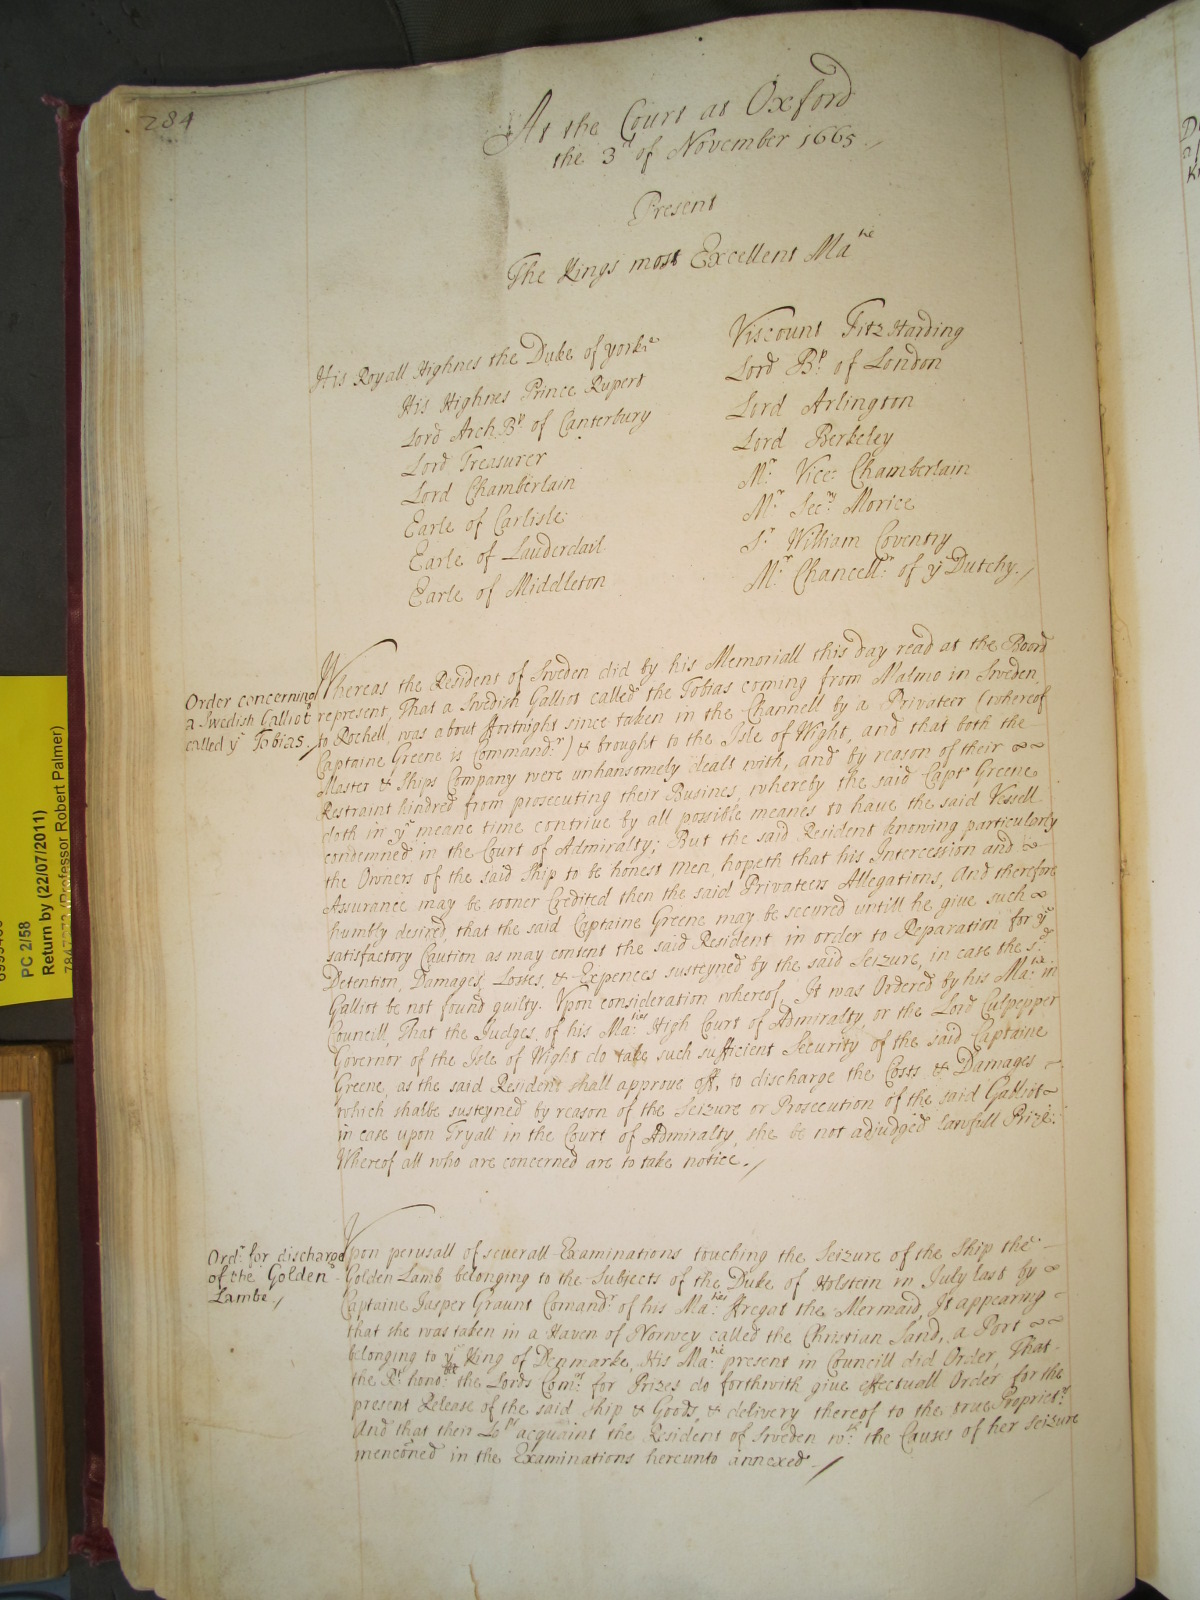 284
At the Court at Oxford
the 3d of November 1665
Present
The Kings most Excellent Matie
His Royall Highnes the Duke of yorke
His Highnes Prince Rupert
Lord Arch Bp of Canterbury
Lord Treasurer
Lord Chamberlain
Earle of Carlisle
Earle of Lauderdail
Earle of Middleton
Viscount Fitz Harding
Lord Bp. of London
Lord Arlington
Lord Berkeley
Mr. Vice: Chamberlain
Mr. Secry Morice
Sr. William Coventry
Mr. Chancellr: of ye Dutchy./
Order concerning
a Swedish Galliot
called ye Tobias./
Whereas the Resident of Sweden did by his Memoriall this day read at the Board
represent, That a Swedish Galliot called the Tobias coming from Malmo in Sweden,
to Rochell, was about ffortnight since taken in the Channell by a Privateer (whereof
Captaine Greene is Commandr.) & brought to the Isle of Wight, and that both the
Master & Ships Company were unhansomely dealt with, and by reason of their
Restraint hindred from prosecuting their Busines, whereby the said Capt Greene
doth in ye meane time contrive by all possible meanes to have the said Vessell
condemned in the Court of Admiralty; But the said Resident knowing particularly
the Owners of the said Ship to be honest men, hopeth that his Intercession and
Assurance may be sooner Credited then the said Privateers Allegations, And therefore
humbly desired, that the said Captaine Greene may be secured untill he give such
satisfactory Caution as may content the said Resident in order to Reparation for ye
Detention, Damages, Losses, & Expences susteyned by the said Seizure, in case the sd.
Galliot be not found guilty. Vpon consideration whereof, It was Ordered by his Matie: in
Councill, That the Judges of his Maties High Court of Admiralty, or the Lord Culpepper
Governor of the Isle of Wight do take such sufficient Security of the said Captaine
Greene, as the said Resident shall approve off, to discharge the Costs & Damages
which shalbe susteyned by reason of the Seizure or Prosecution of the said Galliot
in case upon Tryall in the Court of Admiralty, she be not adjudged lawfull Prize:
Whereof all who are concerned are to take notice./
Ordr for discharge
of the Golden
Lambe./
Vpon perusall of severall Examinations touching the Seizure of the Ship the
Golden Lamb belonging to the Subjects of the Duke of Holstein in July last by
Captaine Jasper Graunt Comandr of his Maties ffregat the Mermaid, It appearing
that she was taken in a Haven of Norwey called the Christian Sand, a Port
belonging to ye King of Denmarke, His Matie: present in Councill did Order, That
the Rt. honoble the Lords Comrs for Prizes do forthwith give effectuall Order for the
present Release of the said Ship & Goods, & delivery thereof to the true Proprietrs
And that their Lopps acquaint the Resident of Sweden wth: the Causes of her Seizure
menconed in the Examinations hereunto annexed./
PC 2/58
Return by (22/07/2011)
(Professor Robert Palmer)